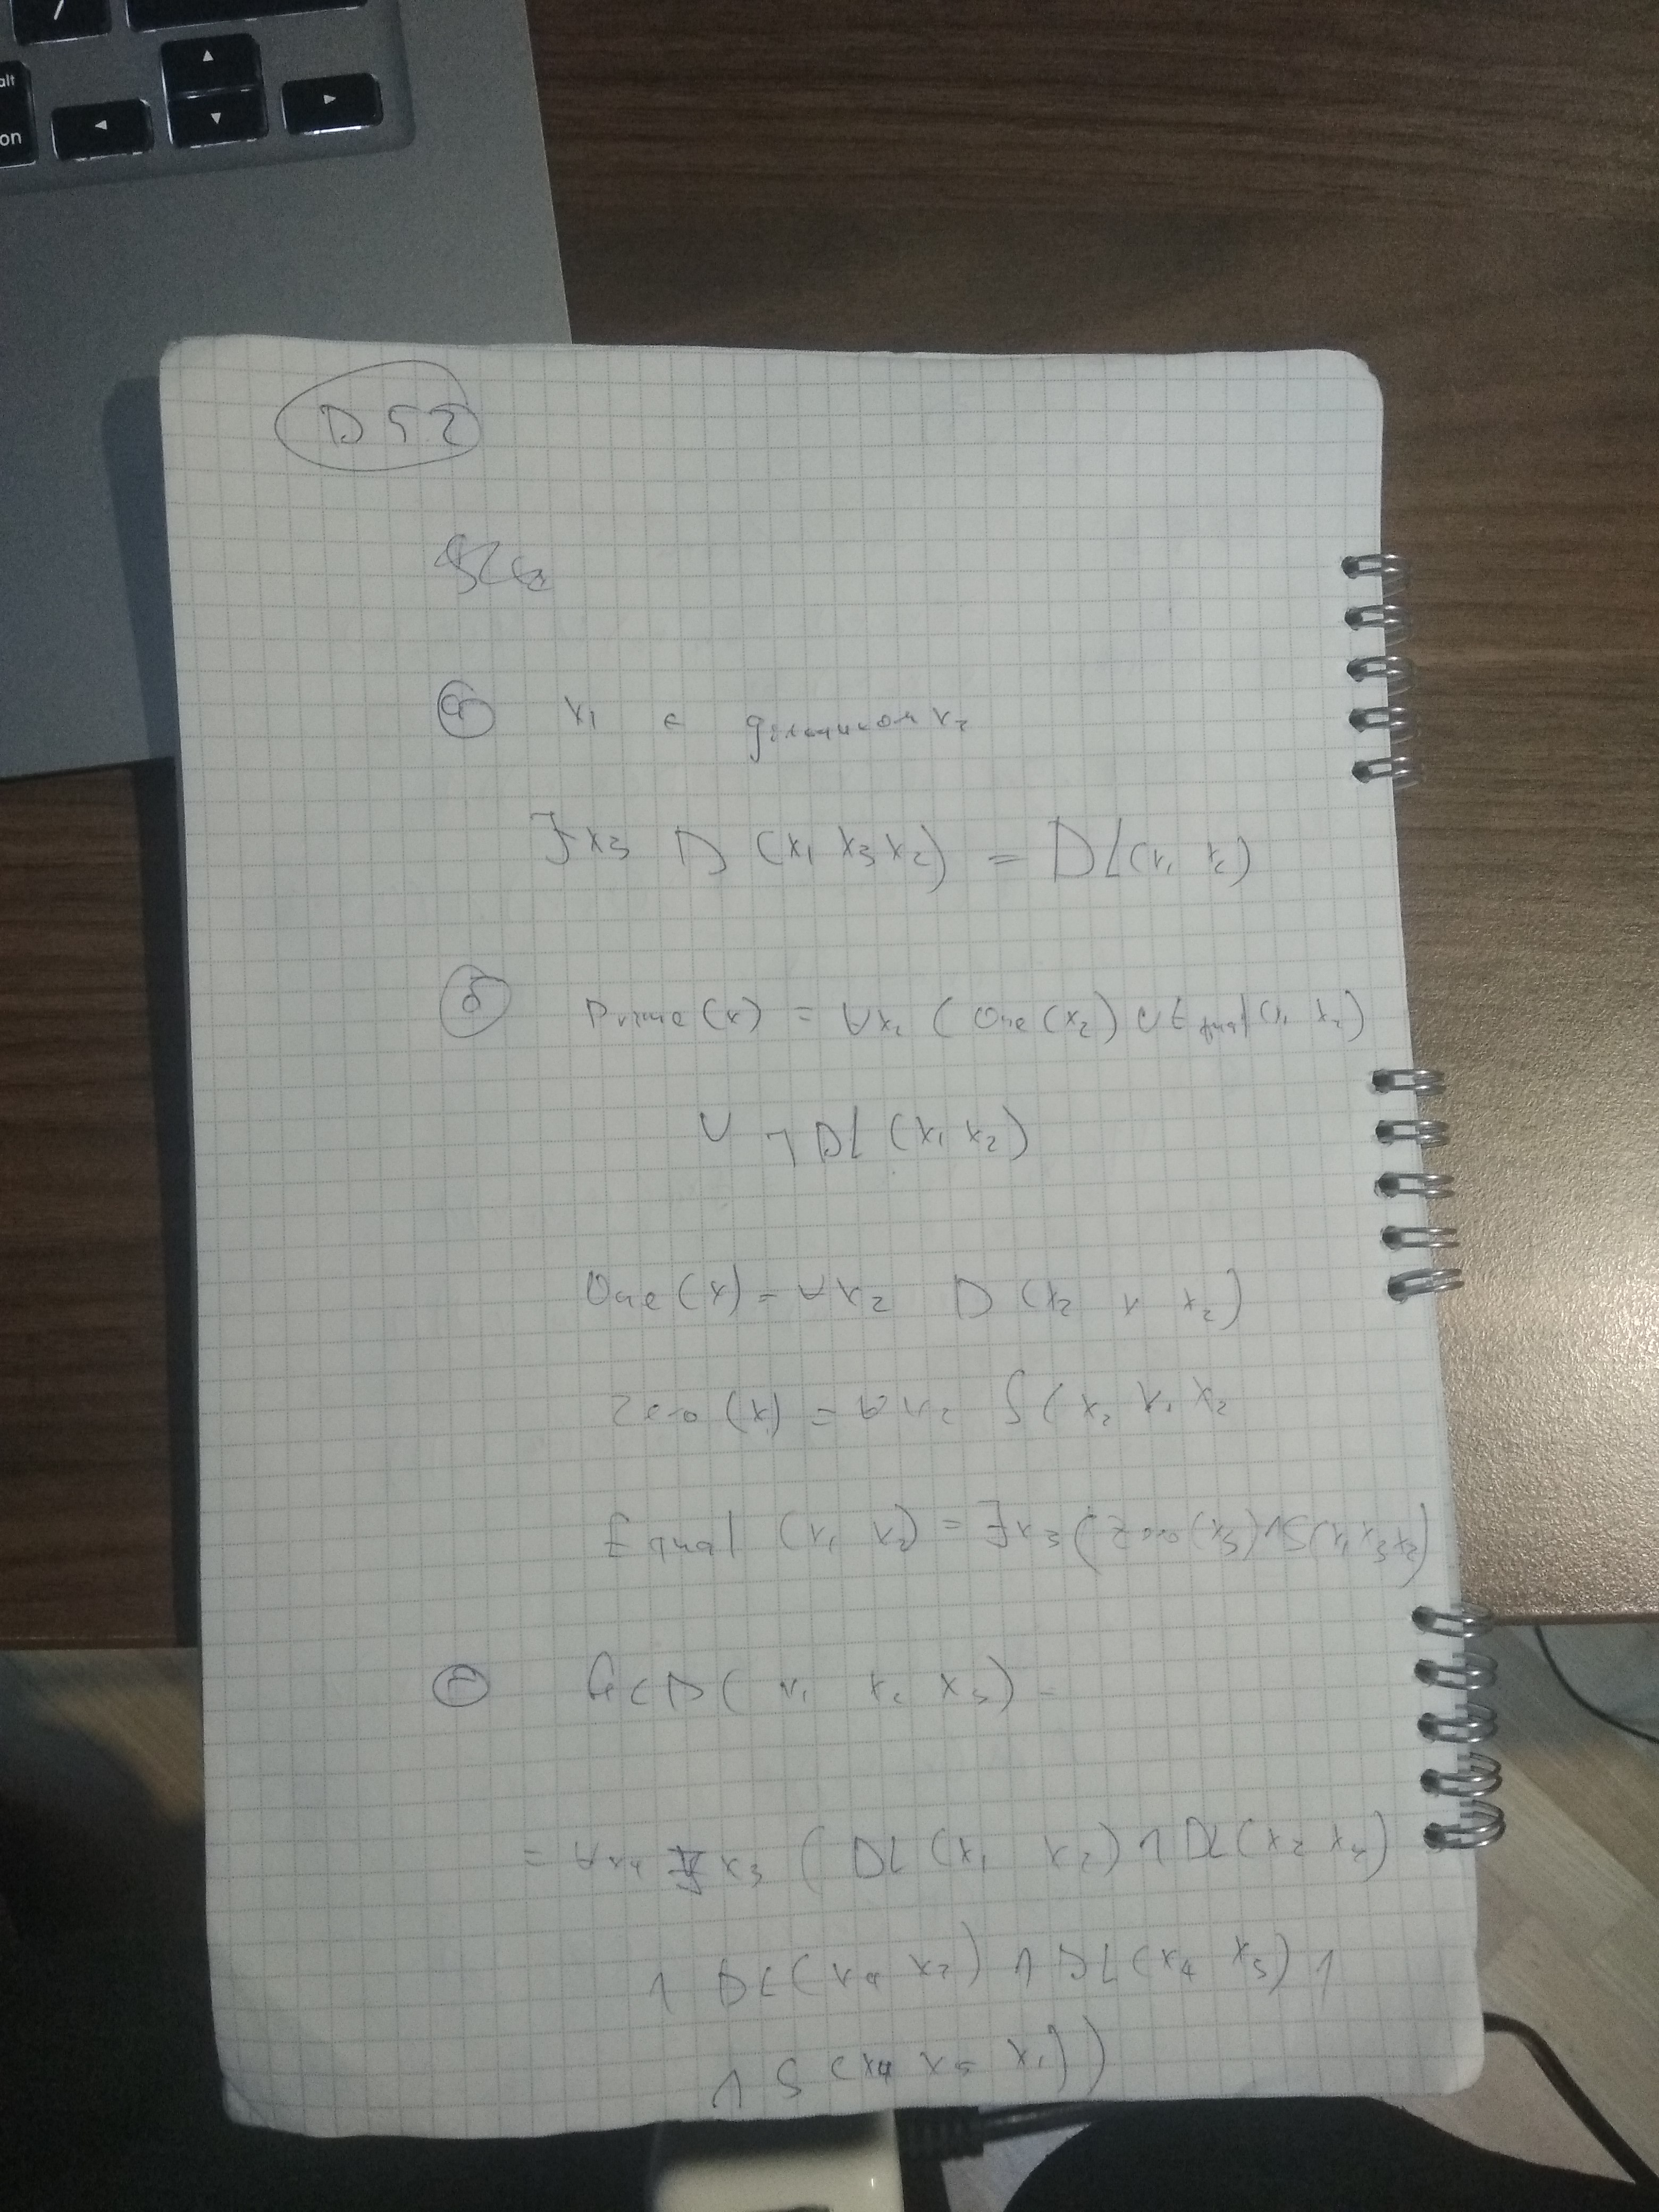 alt
on
D52
а x₁ є дільником x₂
∃x₃ D (x₁ x₃ x₂) = DL(x₁ x₂)
б Prime (x) = ∀x₂ ( One (x₂) ∪ Equal (x₁ x₂)
∪ ¬DL (x₁ x₂)
One (x) = ∀x₂ D (x₂ x x₂)
Zero (x) = ∀x₂ S ( x₂ x₁ x₂
Equal (x₁ x₂) = ∃x₃ ( Zero (x₃) ∧S(x₁ x₃ x₂)
GCD ( x₁ x₂ x₃) =
= ∀x₄ x₃ ( DL (x₁ x₂) ∧ DL(x₂ x₃)
∧ DL (x₄ x₂) ∧ DL (x₄ x₃) ∧
∧ S (x₄ x₅ x₁))